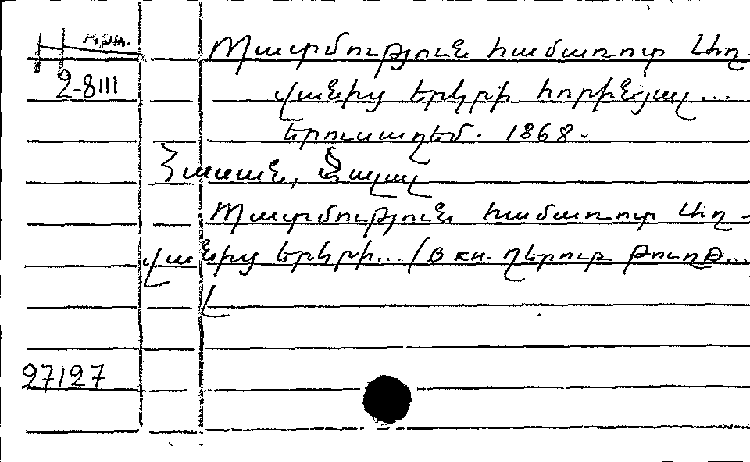 Арм.
2-8III
Պատմություն համառոտ Աղ-
վանից երկրի հորինյալ...
Երուսաղեմ. 1868.
Հասան, Ջալալ
Պատմություն համառոտ Աղ-
վանից երկրի... (В кн. դերուր թուղթ...
27127